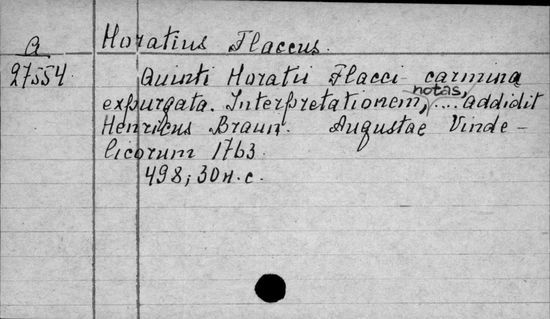 Horatius Flaccus.
A
27554.
Quinti Horatii Flacci carmina
expurgata. Interpretationem, notas, .... addidit
Henricus Braun. Augustae Vinde-
licorum 1763.
498; 30 н.с.